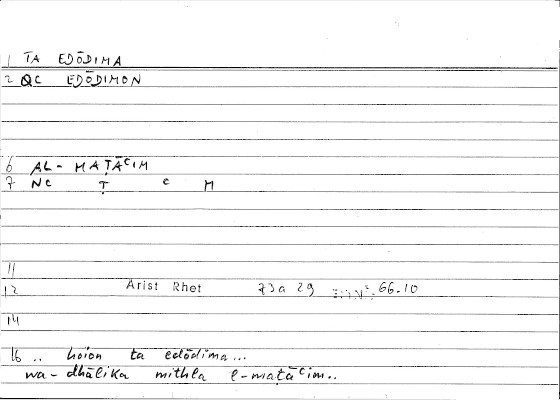 1 TA EDŌDIMA
2 QC EDŌDIMON
6 AL- MAṬĀᶜIM
7 NC Ṭ ᶜ M
11
12 Arist Rhet 73a 29 66.10
14
16 .. hoion ta edōdima...
wa-dhālika mithla l-maṭāᶜim..